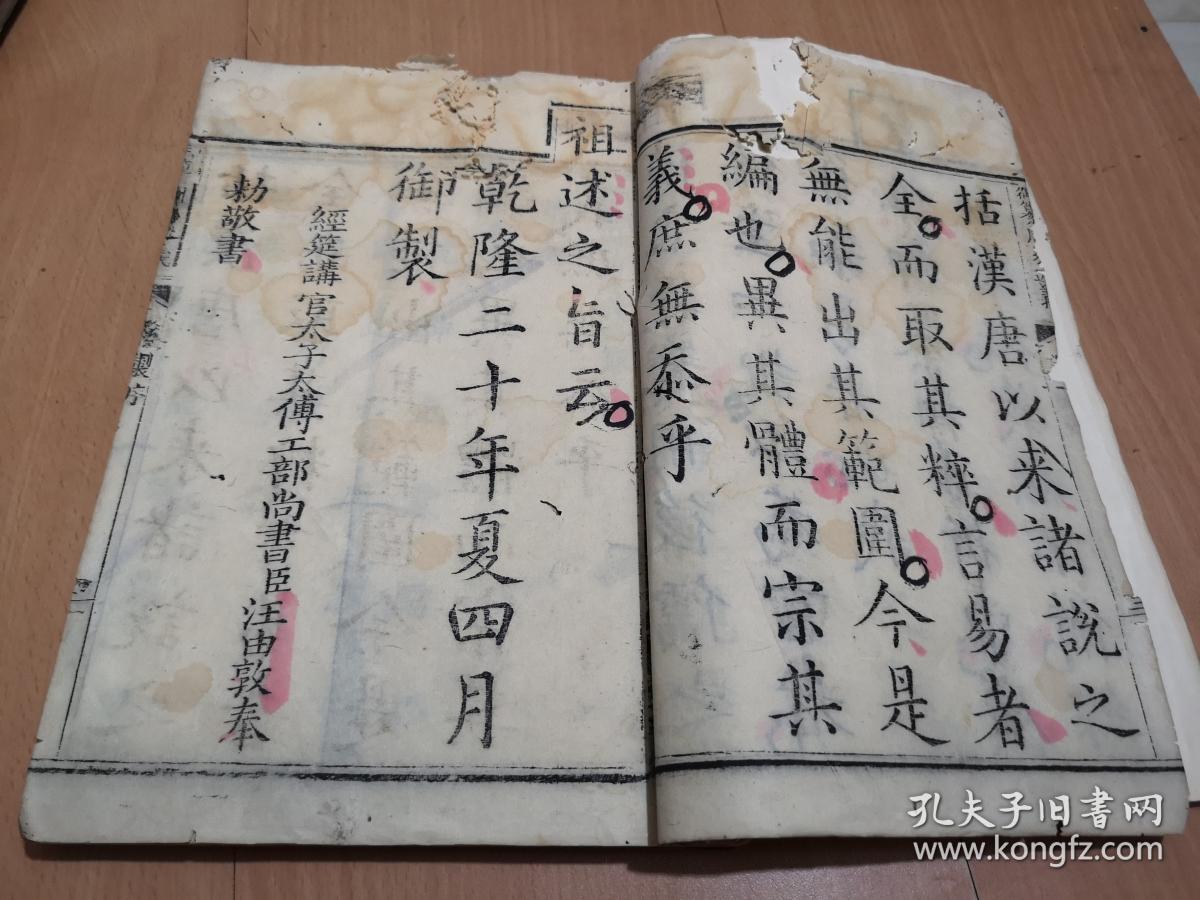 括漢唐以来諸說之
全而取其粹言易者
無能出其範圍今是
編也異其體而宗其
義庶無忝乎
祖述之旨云
乾隆二十年夏四月
御製
經筵講官太子太傅工部尚書臣汪由敦奉
勅敬書
製序
孔夫子旧书网
www.kongfz.com